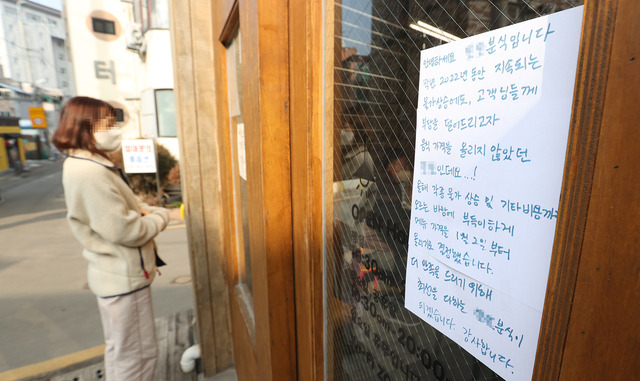 안녕하세요 분식입니다
작년 2022년 동안 지속되는
물가상승에도, 고객님들께
부담을 덜어드리고자
음식 가격을 올리지 않았던
인데요...!
올해 각종 물가 상승 및 기타비용까지
오르는 바람에 부득이하게
메뉴 가격을 1월 2일부터
올리기로 결정했습니다.
더 만족을 드리기 위해
최선을 다하는 분식
되겠습니다. 감사합니다.
터
20:00